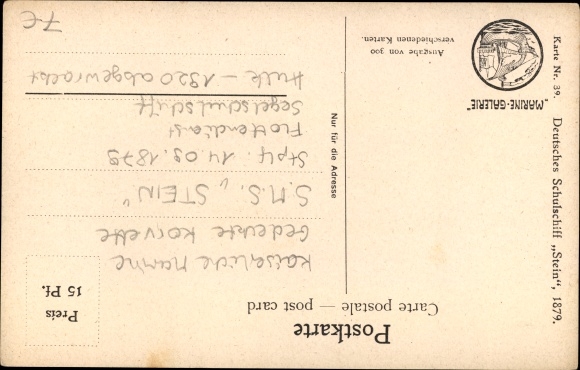 Postkarte
Carte postale — post card
Preis
15 Pf.
Nur für die Adresse
Kaiserliche Marine
Gedeckte Korvette
S.M.S. „STEIN"
Stplf. 14.09.1879
Flottendienst
Segelschulschiff
Hulk – 1920 abgewrackt
7€
"MARINE-GALERIE"
Ausgabe von 300
verschiedenen Karten.
Karte Nr. 39. Deutsches Schulschiff „Stein", 1879.